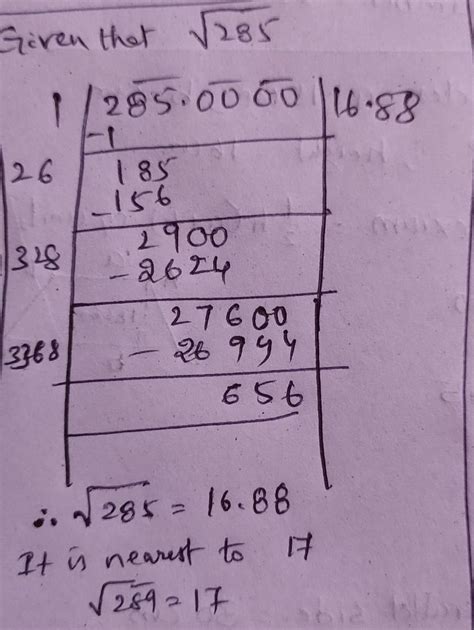 Given that √285
1 285.0000 16.88
-1
26 185
-156
2900
328 -2624
27600
3368 - 26944
656
∴ √285 = 16.88
It is nearest to 17
√289 = 17